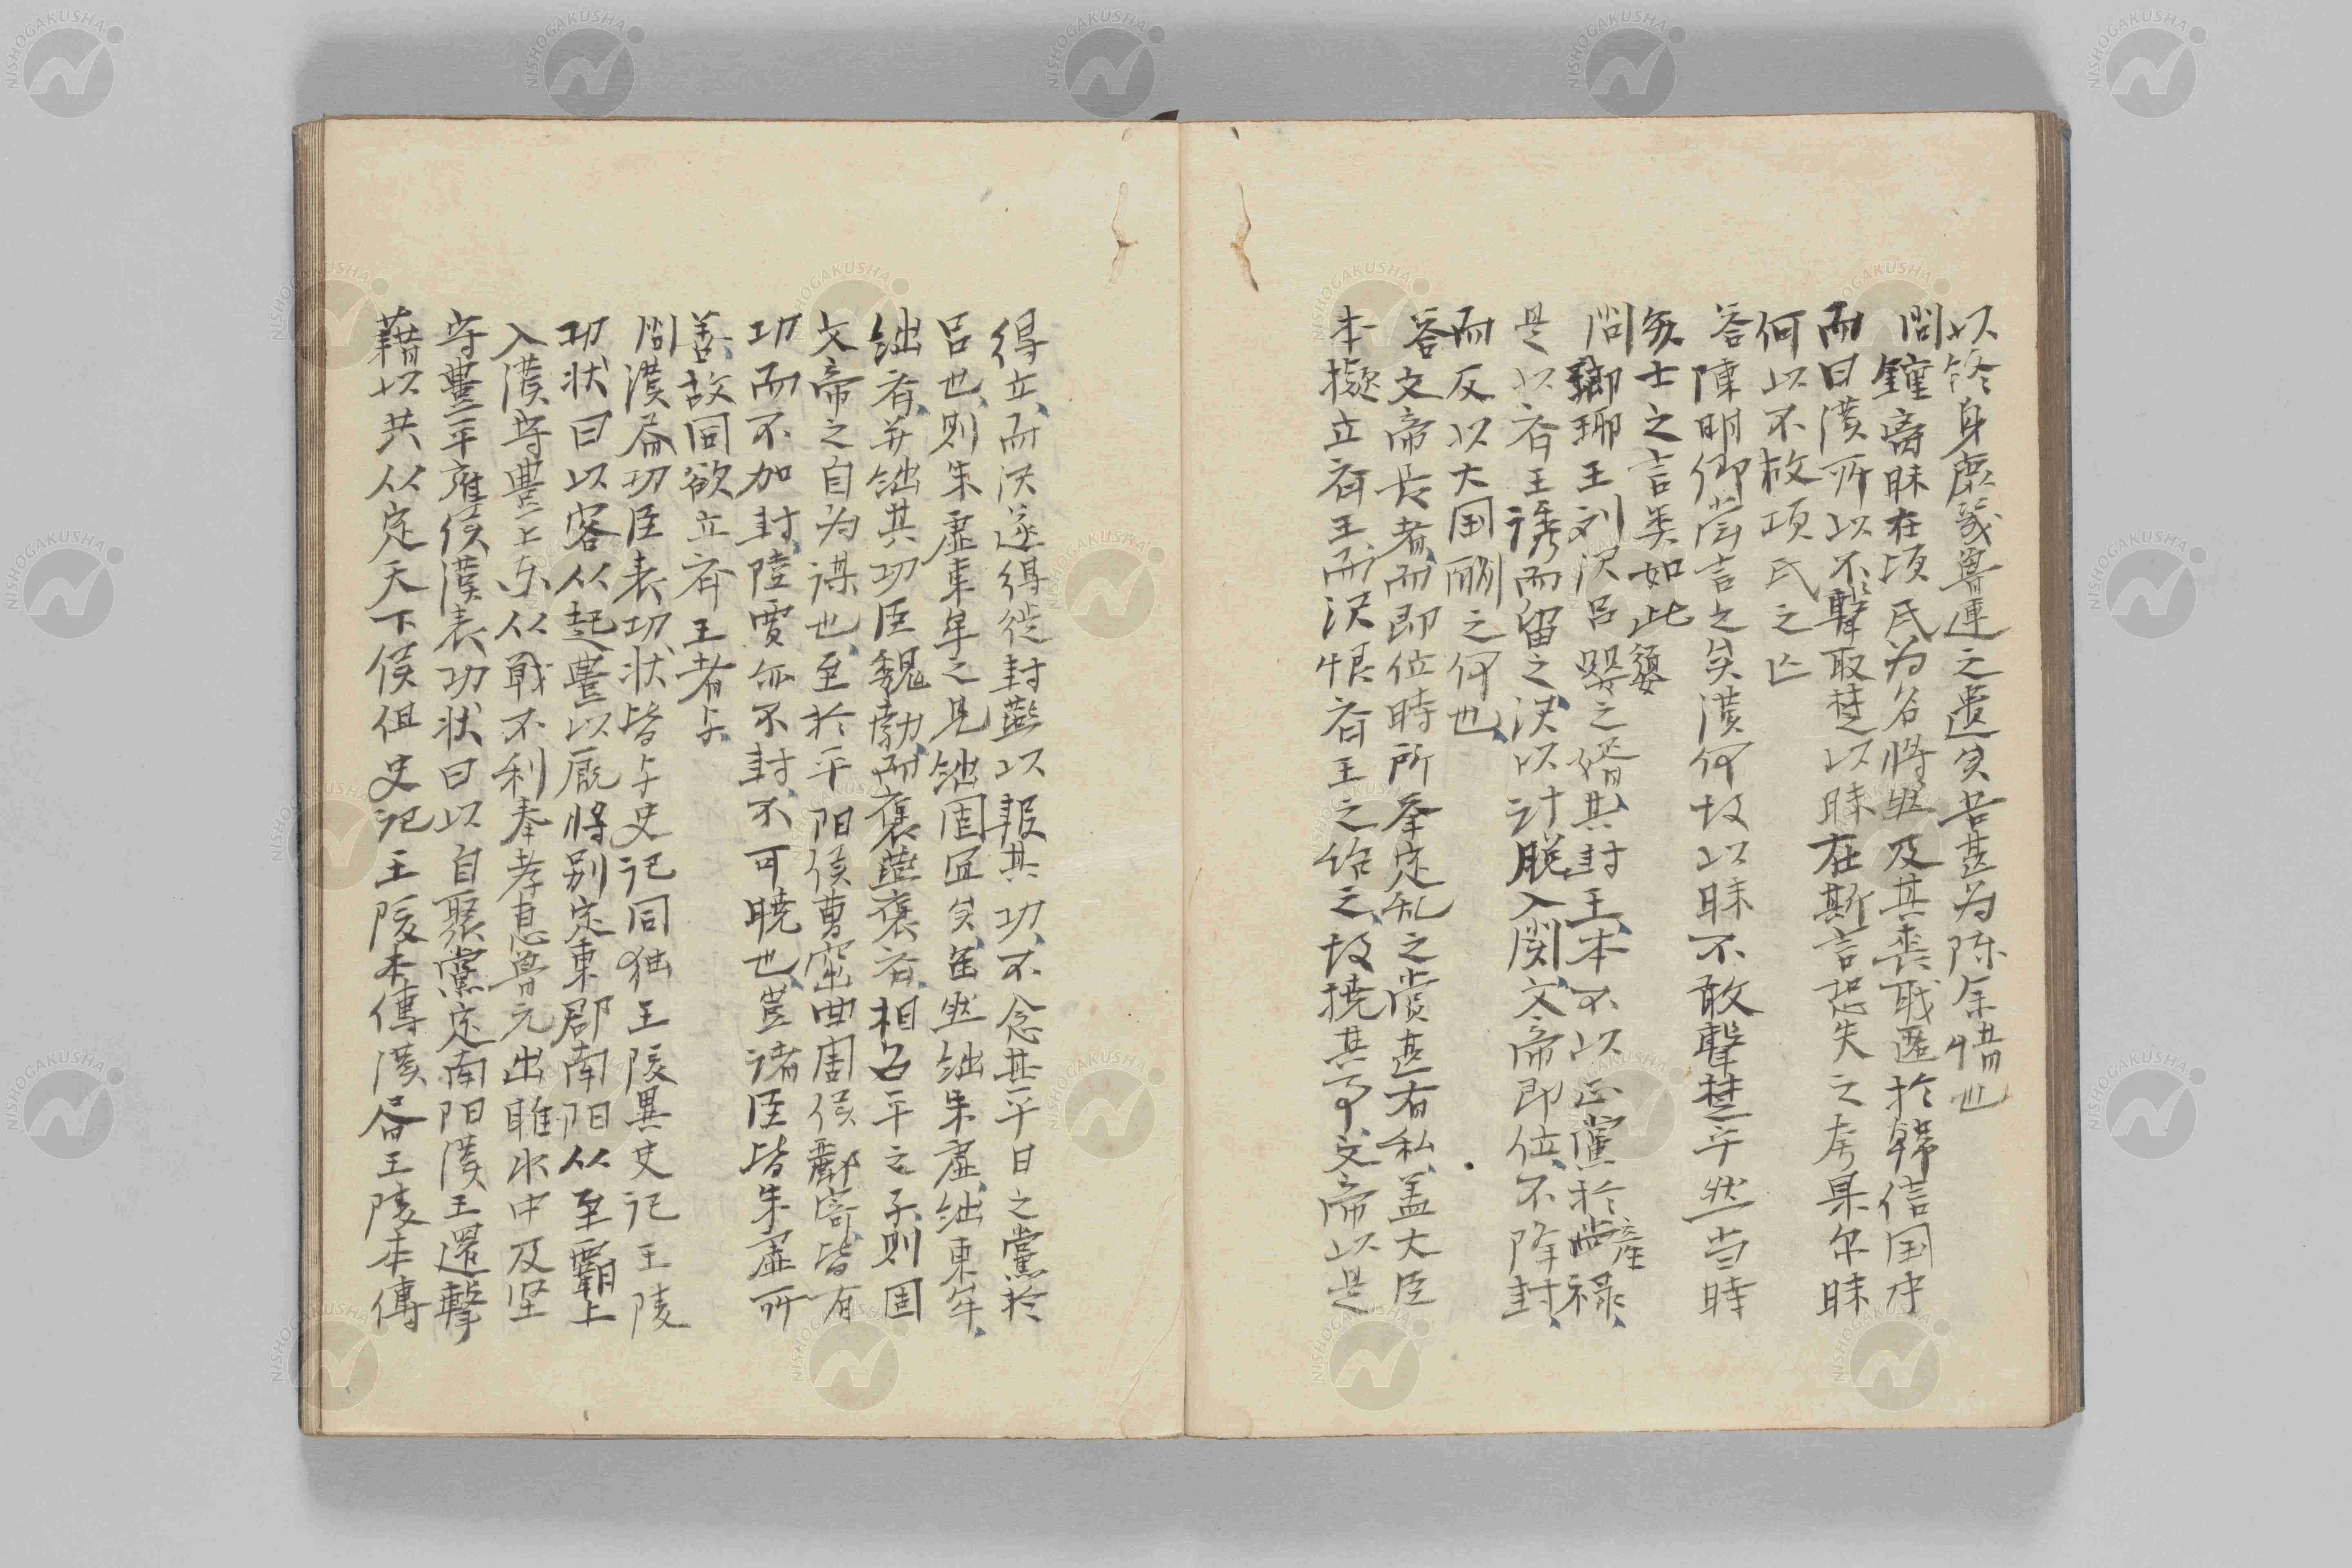 以終身庶幾魯連之遺矣甚為陈余惜也
問鐘离昧在項氏为名將然及其喪敗匿於韓信国中
而曰漢所以不擊取楚以昧在斯言恐失之夸果尔昧
何以不救項氏之亡
答陳明卿嘗言之矣漢何故以昧不敢擊楚乎然当時
矣士之言类如此
問瑯琊王刘泽吕嬃之壻其封王本不以正黨於産禄
是以斉王誘而留之泽以计脱入関文帝即位不降封
而反以大国酬之何也
答文帝長者而即位時所奉定乱之賞甚有私盖大臣
本擬立斉王而泽恨斉王之绐之故撓其事文帝以是
得立而泽遂得徙封燕以報其功不念其平日之黨於
吕也则朱虚東牟之見绌固宜矣虽然绌朱虚绌東牟
绌斉并绌其功臣魏勃而褒燕褒斉相召平之子则固
文帝之自为谋也至於平阳侯曹窋曲周侯酈寄皆有
功而不加封陸賈亦不封不可暁也豈诸臣皆朱虚所
善故同欲立斉王者与
問漢爲功臣表功状皆与史记同独王陵異史记王陵
功状曰以客从起豊以厩将别定東郡南阳从至覇上
入漢守豊上东从戰不利奉孝惠魯元出睢水中及坚
守豊平雍侯漢表功状曰以自聚黨定南阳漢王還擊
藉以共从定天下侯但史记王陵本傳漢各王陵本傳